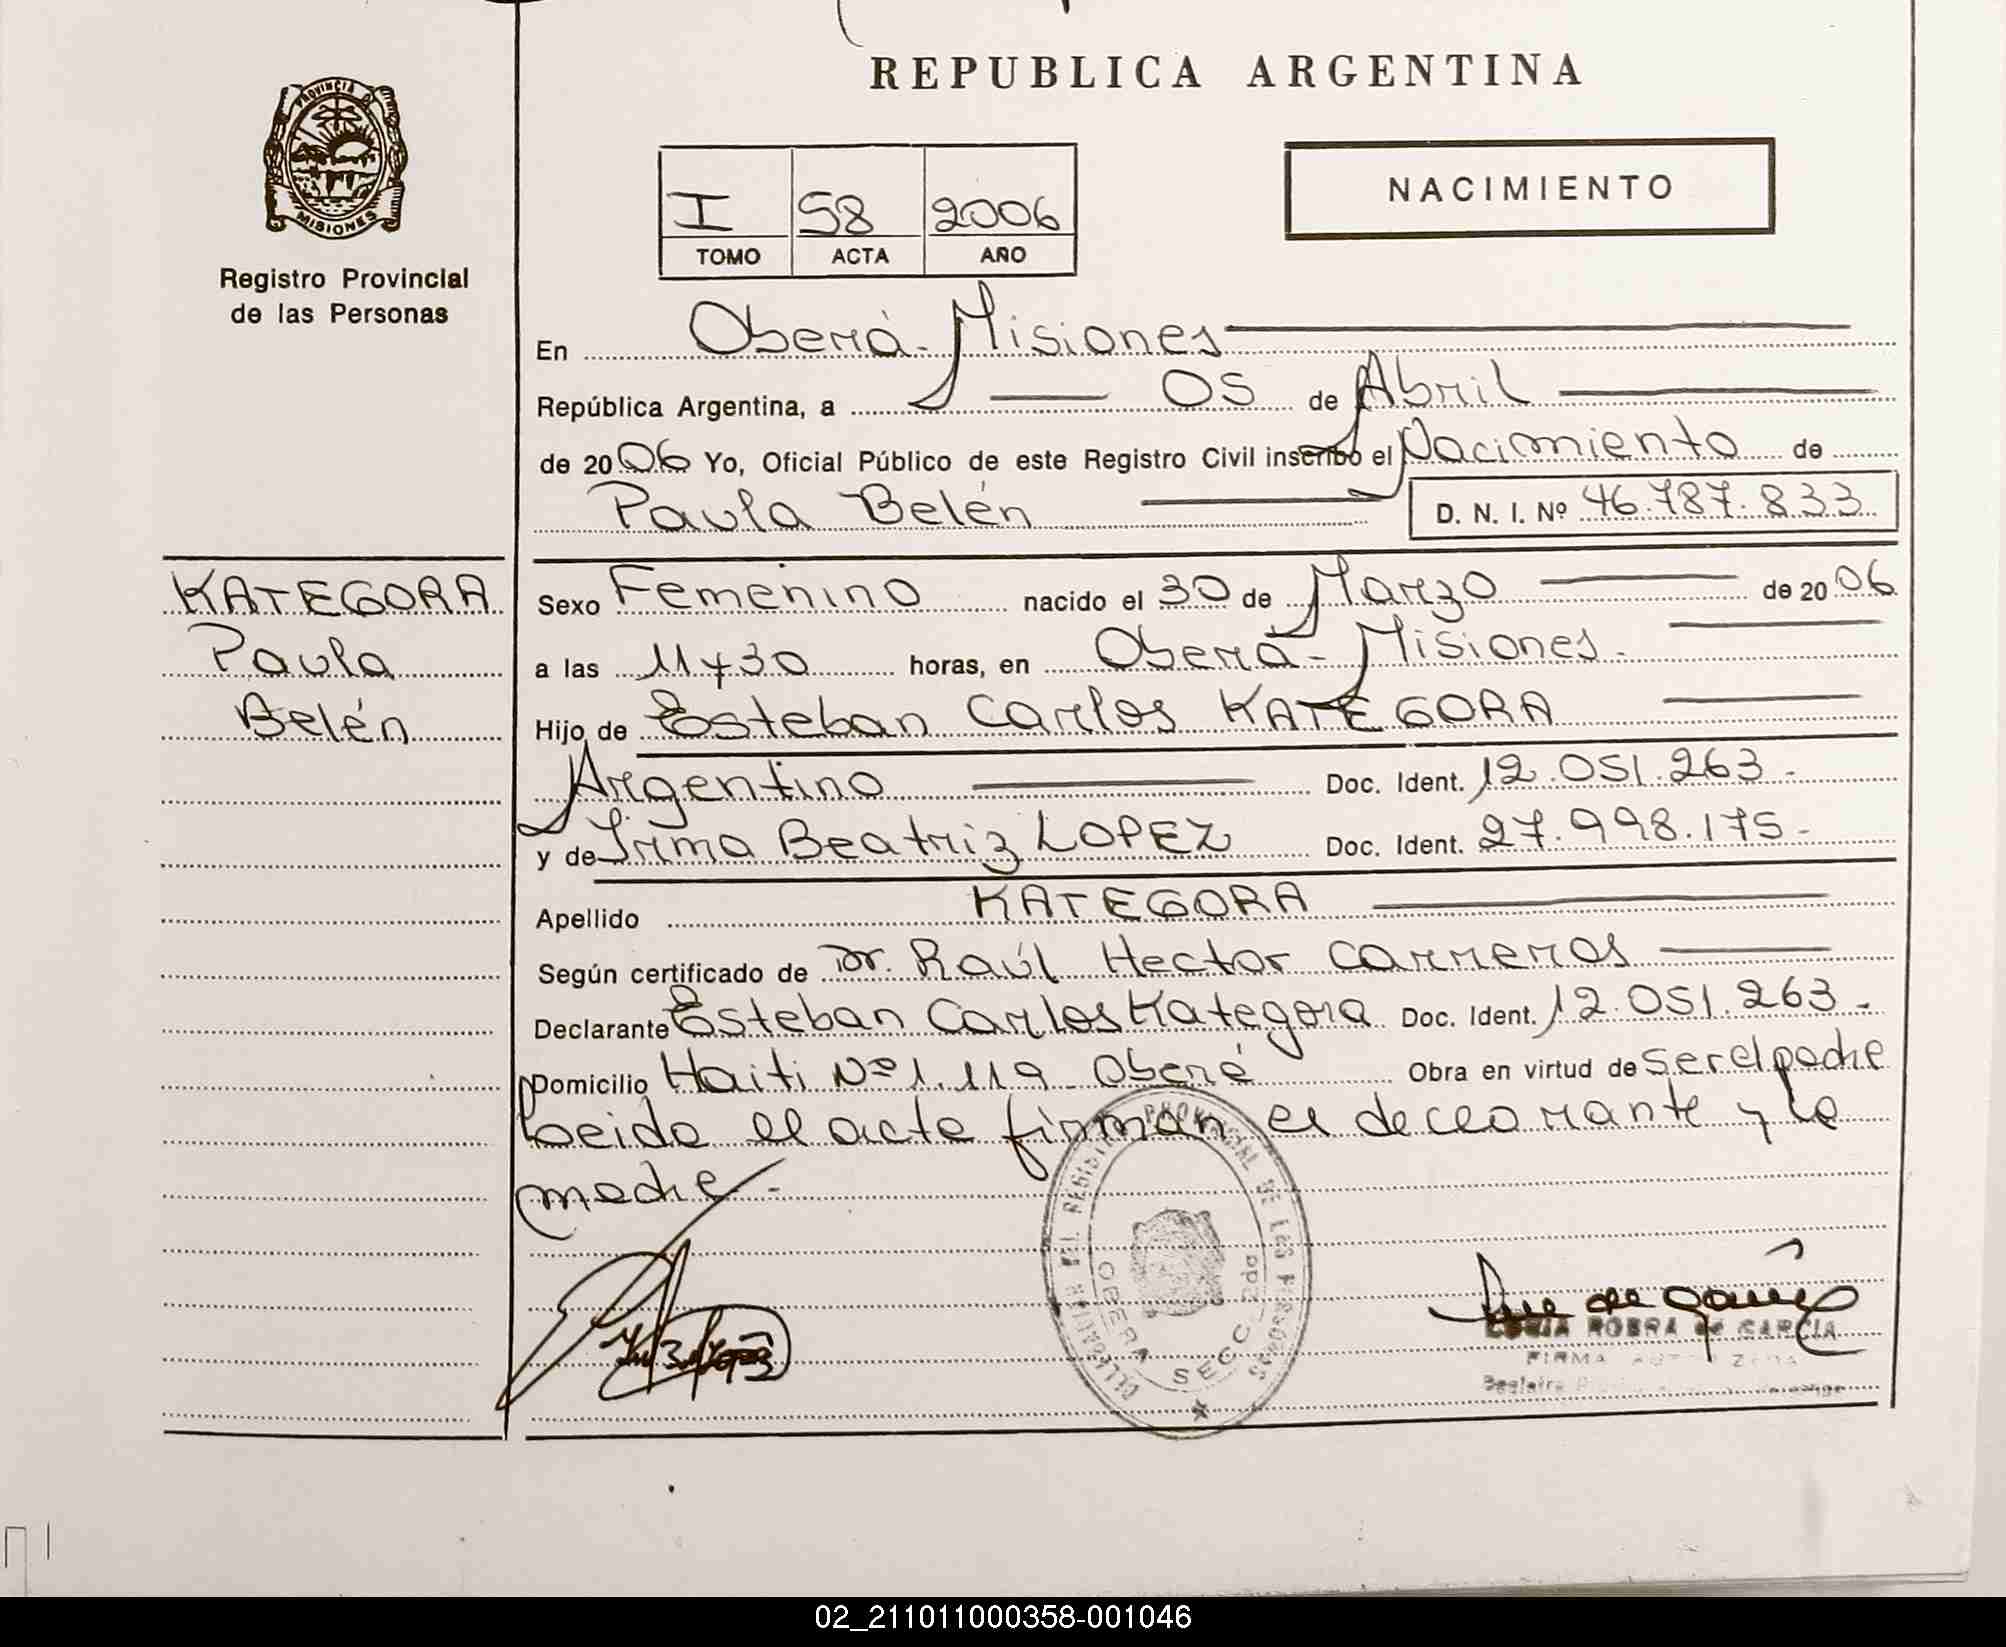 REPUBLICA ARGENTINA
PROVINCIA DE
MISIONES
Registro Provincial
de las Personas
I 58 2006
TOMO ACTA AÑO
NACIMIENTO
En Oberá - Misiones
República Argentina, a 05 de Abril
de 2006 Yo, Oficial Público de este Registro Civil inscribo el Nacimiento de
Paula Belén D. N. I. Nº 46.787.833
KATEGORA
Paula
Belén
Sexo Femenino nacido el 30 de Marzo de 2006
a las 11 y 30 horas, en Oberá - Misiones.
Hijo de Esteban Carlos KATEGORA
Argentino Doc. Ident. 12.051.263.-
y de Irma Beatriz LOPEZ Doc. Ident. 27.998.175.-
Apellido KATEGORA
Según certificado de Dr. Raúl Hector Carreros
Declarante Esteban Carlos Kategora Doc. Ident. 12.051.263.-
Domicilio Haiti Nº 1.119 Oberá Obra en virtud de ser el padre
Leida el acta firman el declarante y la
madre.-
REGISTRO PROVINCIAL DE LAS PERSONAS
OBERA SECC. 2da
ROBRA de GARCIA
FIRMA
02_211011000358-001046